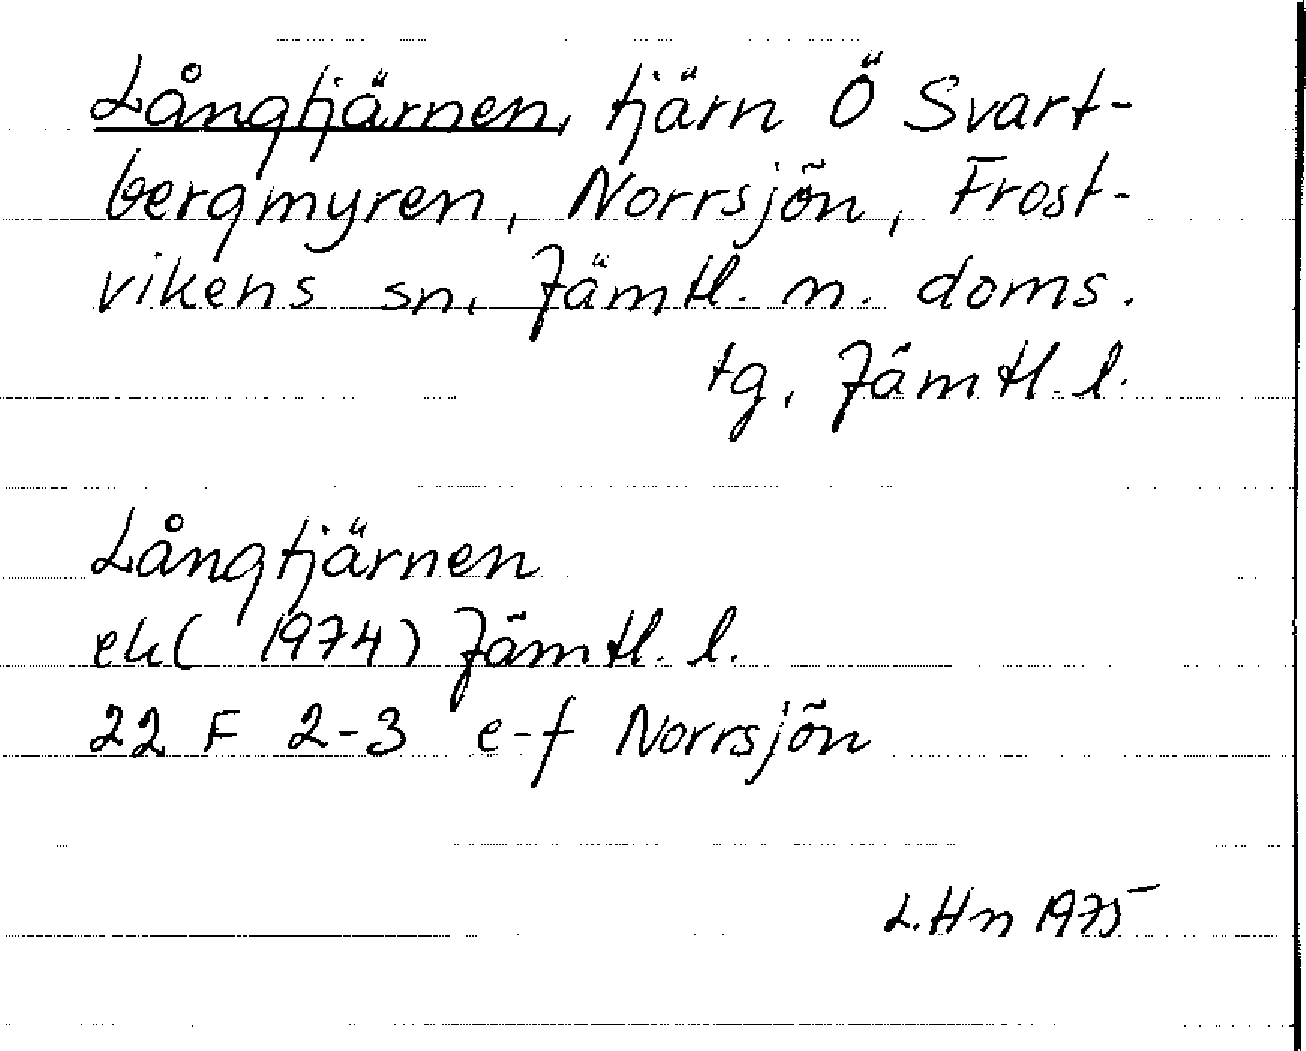 Långtjärnen, tjärn Ö Svart-
bergmyren, Norrsjön, Frost-
vikens sn, Jämtl. n. doms.
tg, Jämtl. l.
Långtjärnen
ek (1974) Jämtl. l.
22 F 2-3 e-f Norrsjön
L. Hn 1975